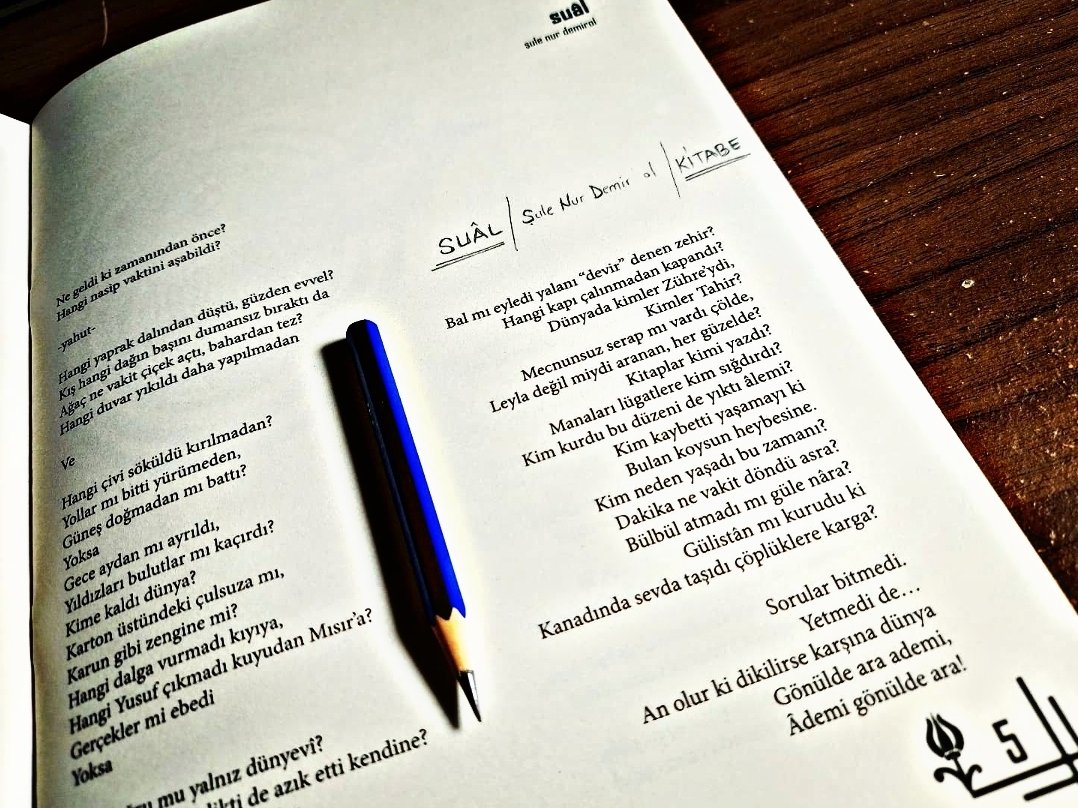 suâl
şule nur demiral
SUÂL | Şule Nur Demir'al | KİTABE
Ne geldi ki zamanından önce?
Hangi nasip vaktini aşabildi?
-yahut-
Hangi yaprak dalından düştü, güzden evvel?
Kış hangi dağın başını dumansız bıraktı da
Ağaç ne vakit çiçek açtı, bahardan tez?
Hangi duvar yıkıldı daha yapılmadan
Ve
Hangi çivi söküldü kırılmadan?
Yollar mı bitti yürümeden,
Güneş doğmadan mı battı?
Yoksa
Gece aydan mı ayrıldı,
Yıldızları bulutlar mı kaçırdı?
Kime kaldı dünya?
Karton üstündeki çulsuza mı,
Karun gibi zengine mi?
Hangi dalga vurmadı kıyıya,
Hangi Yusuf çıkmadı kuyudan Mısır'a?
Gerçekler mi ebedi
Yoksa
mu yalnız dünyevî?
de azık etti kendine?
Bal mı eyledi yalanı “devir” denen zehir?
Hangi kapı çalınmadan kapandı?
Dünyada kimler Zühre'ydi,
Kimler Tahir?
Mecnunsuz serap mı vardı çölde,
Leyla değil miydi aranan, her güzelde?
Kitaplar kimi yazdı?
Manaları lügatlere kim sığdırdı?
Kim kurdu bu düzeni de yıktı âlemi?
Kim kaybetti yaşamayı ki
Bulan koysun heybesine.
Kim neden yaşadı bu zamanı?
Dakika ne vakit döndü asra?
Bülbül atmadı mı güle nâra?
Gülistân mı kurudu ki
Kanadında sevda taşıdı çöplüklere karga?
Sorular bitmedi.
Yetmedi de…
An olur ki dikilirse karşına dünya
Gönülde ara ademi,
Âdemi gönülde ara!
5